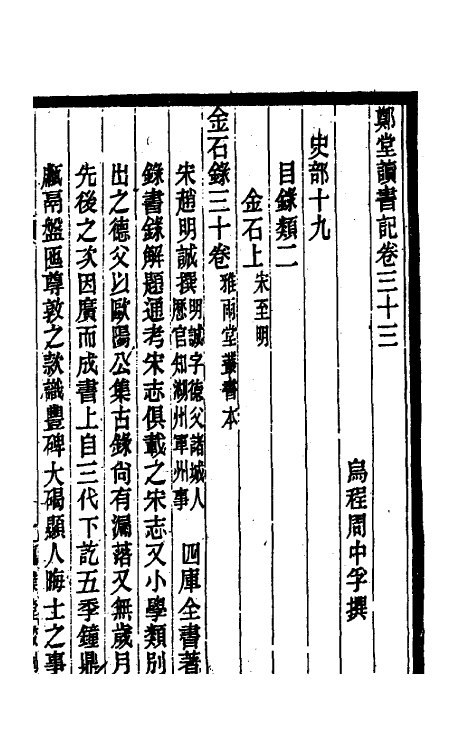 鄭堂讀書記卷三十三
烏程周中孚撰
史部十九
目錄類二
金石上宋至明
金石錄三十卷雅雨堂叢書本
宋趙明誠撰明誠字德父諸城人歷官知湖州軍州事　四庫全書著
錄書錄解題通考宋志俱載之宋志又小學類別
出之德父以歐陽公集古錄尙有漏落又無歲月
先後之次因廣而成書上自三代下訖五季鐘鼎
甗鬲盤匜尊敦之款識豐碑大碣顯人晦士之事